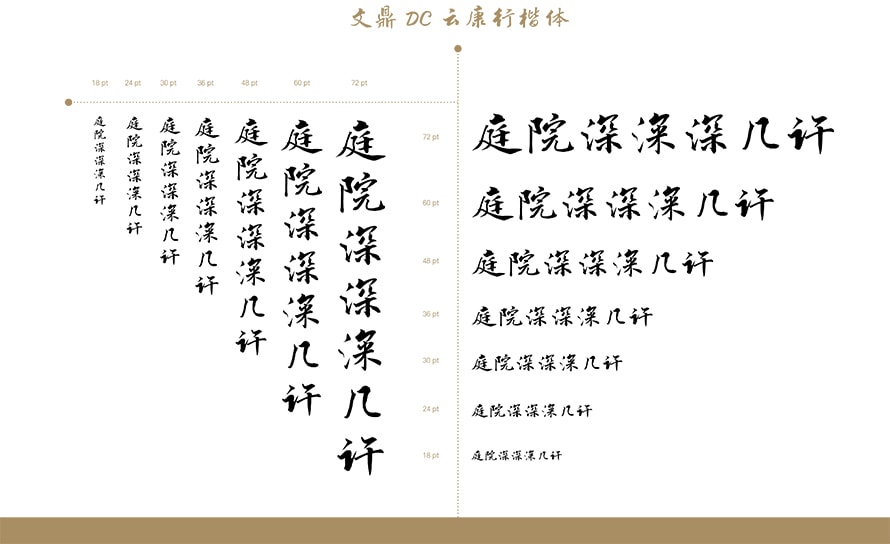 文鼎 DC 云康行楷体
18 pt
24 pt
30 pt
36 pt
48 pt
60 pt
72 pt
庭院深深深几许
庭院深深深几许
庭院深深深几许
庭院深深深几许
庭院深深深几许
庭院深深深几许
庭院深深深几许
72 pt
庭院深深深几许
60 pt
庭院深深深几许
48 pt
庭院深深深几许
36 pt
庭院深深深几许
30 pt
庭院深深深几许
24 pt
庭院深深深几许
18 pt
庭院深深深几许